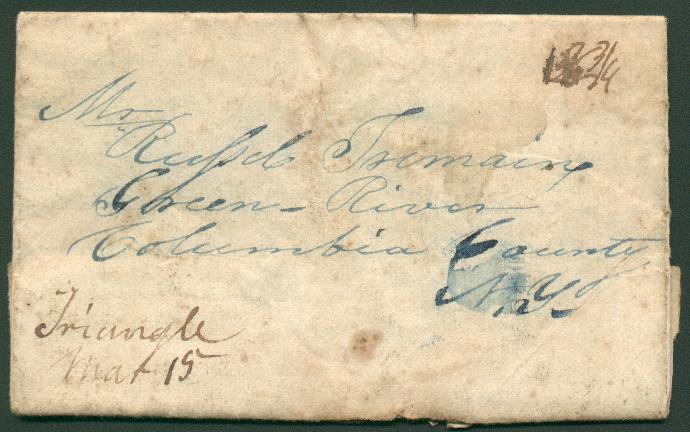 Mr
Russel Tremain
Green-River
Columbia County
N.Y.
Triangle
Mar 15